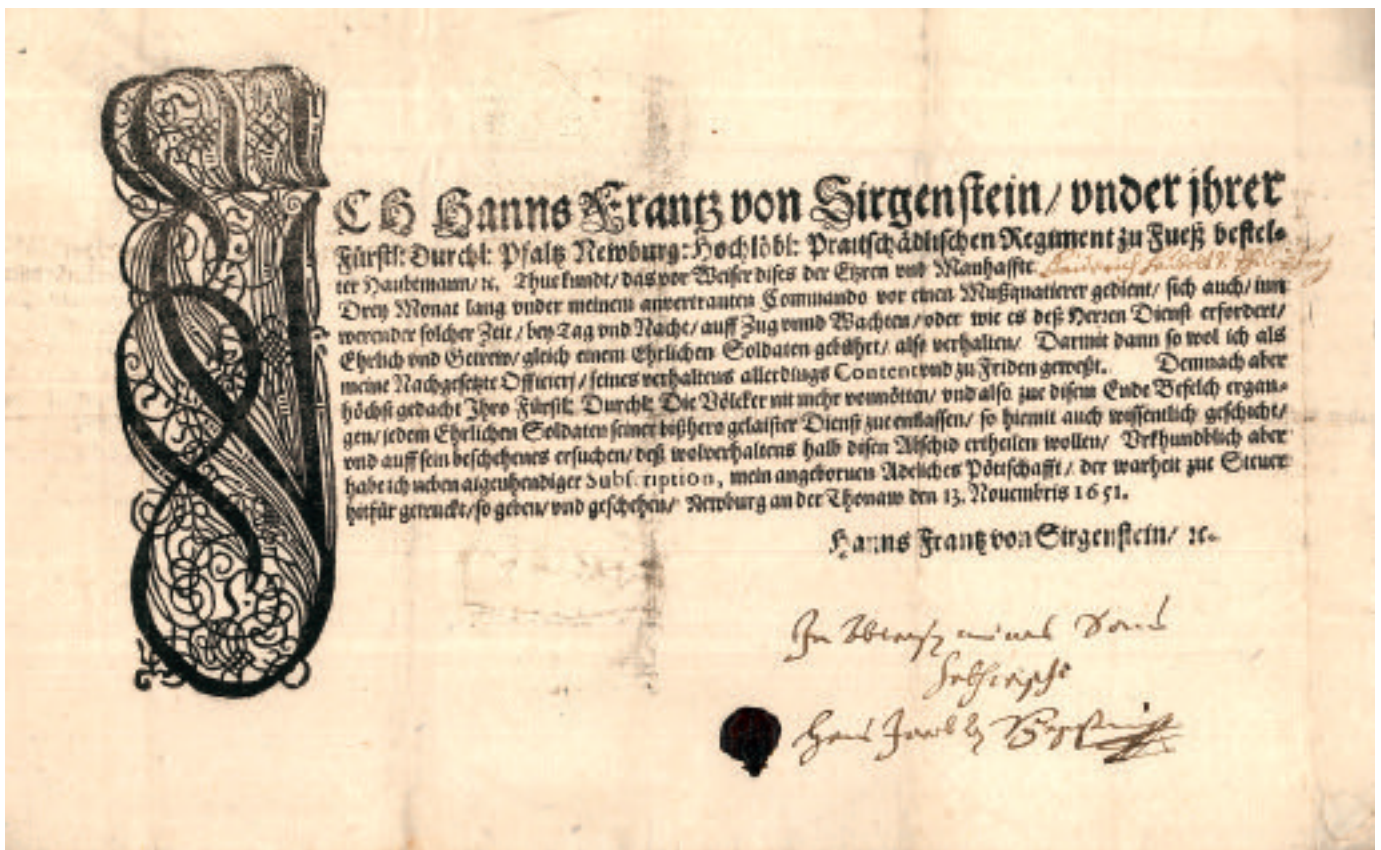 ICH Hanns Frantz von Sirgenstein/ vnder jhrer
Fürstl: Durchl: Pfaltz Newburg: Hochlöbl: Regiment zu Fueß bestel-
ter Haubtmann/ ꝛc. Thue kundt/ das vor Weiser dises der Ehren vnd Manhaffte
Drey Monat lang vnder meinem anvertrauten Commando vor einen Mußquatierer gedient/ sich auch/ inn
werender solcher Zeit/ bey Tag vnd Nacht/ auff Zug vnnd Wachten/ oder wie es deß Herren Dienst erfordert/
Ehrlich vnd Getrew/ gleich einem Ehrlichen Soldaten gebührt/ also verhalten/ Darmit dann so wol ich als
meine Nachgesetzte Officiers/ seines verhaltens allerdings Content vnd zu Friden geweßt. Demnach aber
höchst gedacht Jhro Fürstl: Durchl: Die Völcker nit mehr vonnötten/ vnd also zue disem Ende Befelch ergan-
gen/ jedem Ehrlichen Soldaten seiner bißhero gelaister Dienst zue entlassen/ so hiemit auch wissentlich geschicht/
vnd auff sein beschehenes ersuchen/ deß wolverhaltens halb disen Abschid ertheilen wollen/ Vrkhundblich aber
habe ich neben aigenhendiger Subscription, mein angebornen Adeliches Pöttschafft/ der warheit zue Steuer
hiefür getruckt/ so geben/ vnd geschehen/ Newburg an der Thonaw den 13. Nouembris 1651.
Hanns Frantz von Sirgenstein/ ꝛc.
Hans Jacob